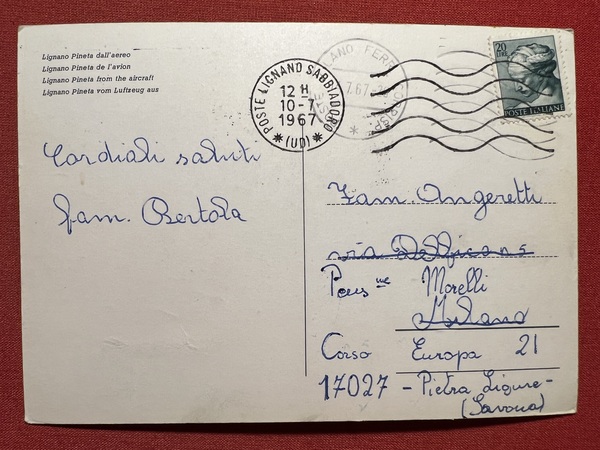 Lignano Pineta dall'aereo
Lignano Pineta de l'avion
Lignano Pineta from the aircraft
Lignano Pineta vom Luftzeug aus
POSTE LIGNANO SABBIADORO
12 H
10-7
1967
(UD)
20
POSTE ITALIANE
Cordiali saluti
fam. Bertola
Fam. Angeretti
via
Morelli
Milano
Corso Europa 21
17027 - Pietra Ligure -
(Savona)